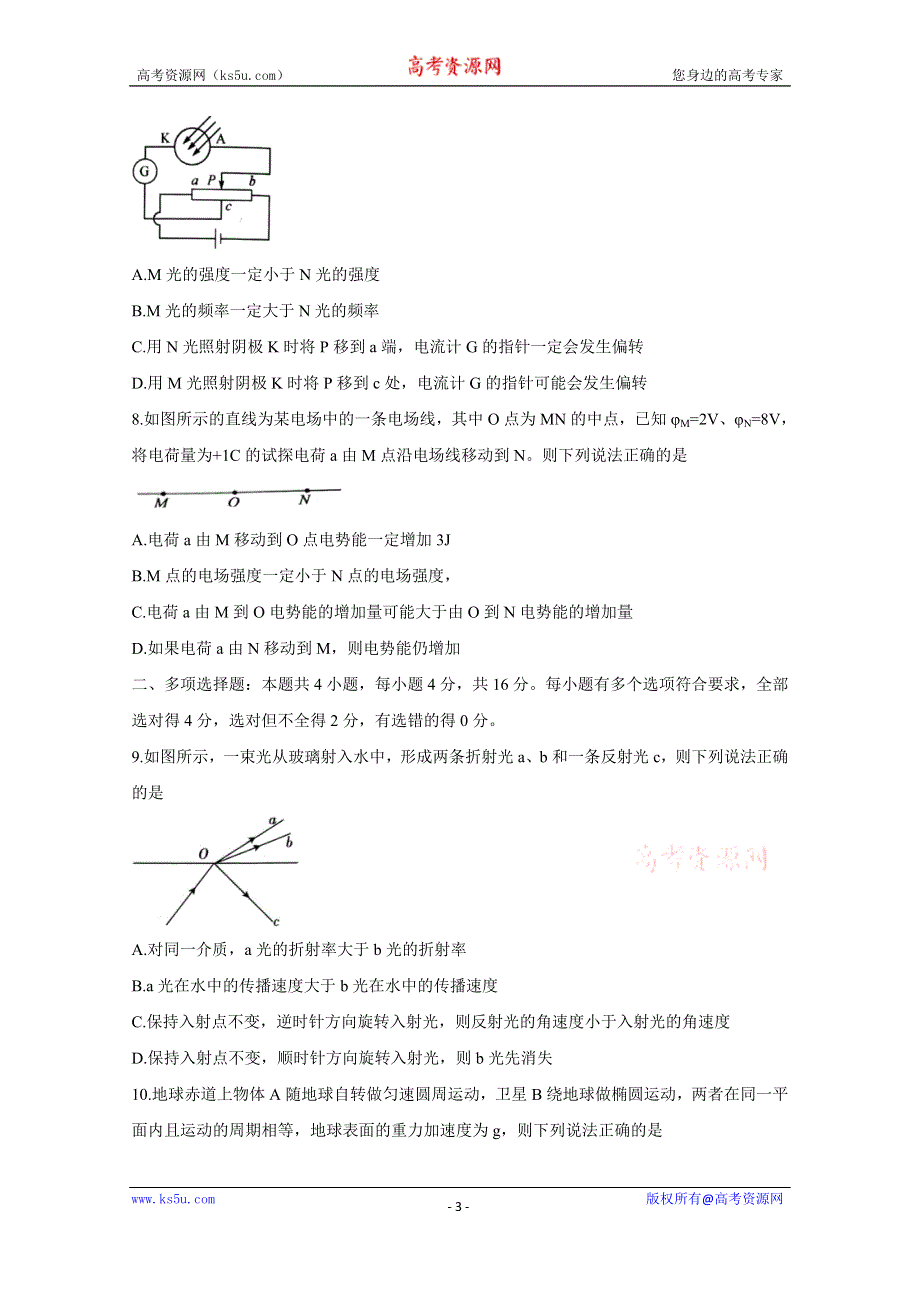 高考资源网（ks5u.com）
高考资源网
您身边的高考专家
K
A
G
a
P
b
c
A.M 光的强度一定小于 N 光的强度
B.M 光的频率一定大于 N 光的频率
C.用 N 光照射阴极 K 时将 P 移到 a 端，电流计 G 的指针一定会发生偏转
D.用 M 光照射阴极 K 时将 P 移到 c 处，电流计 G 的指针可能会发生偏转
8.如图所示的直线为某电场中的一条电场线，其中 O 点为 MN 的中点，已知 φM=2V、φN=8V，
将电荷量为+1C 的试探电荷 a 由 M 点沿电场线移动到 N。则下列说法正确的是
M
O
N
A.电荷 a 由 M 移动到 O 点电势能一定增加 3J
B.M 点的电场强度一定小于 N 点的电场强度，
C.电荷 a 由 M 到 O 电势能的增加量可能大于由 O 到 N 电势能的增加量
D.如果电荷 a 由 N 移动到 M，则电势能仍增加
二、多项选择题：本题共 4 小题，每小题 4 分，共 16 分。每小题有多个选项符合要求，全部
选对得 4 分，选对但不全得 2 分，有选错的得 0 分。
9.如图所示，一束光从玻璃射入水中，形成两条折射光 a、b 和一条反射光 c，则下列说法正确
的是
a
b
O
c
高考资源网
A.对同一介质，a 光的折射率大于 b 光的折射率
B.a 光在水中的传播速度大于 b 光在水中的传播速度
C.保持入射点不变，逆时针方向旋转入射光，则反射光的角速度小于入射光的角速度
D.保持入射点不变，顺时针方向旋转入射光，则 b 光先消失
10.地球赤道上物体 A 随地球自转做匀速圆周运动，卫星 B 绕地球做椭圆运动，两者在同一平
面内且运动的周期相等，地球表面的重力加速度为 g，则下列说法正确的是
www.ks5u.com
- 3 -
版权所有@高考资源网